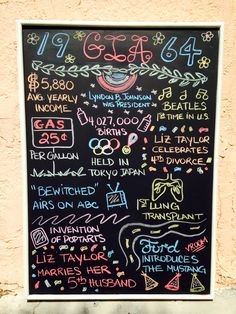 19 GIA 64
$5,880
AVG. YEARLY
INCOME
LYNDON B. JOHNSON
WAS PRESIDENT
BEATLES
1ST TIME IN U.S.
GAS
25¢
PER GALLON
4,027,000
BIRTHS
LIZ TAYLOR
CELEBRATES
4TH DIVORCE
HELD IN
TOKYO JAPAN
"BEWITCHED"
AIRS ON ABC
1ST LUNG
TRANSPLANT
INVENTION
OF POPTARTS
LIZ TAYLOR
MARRIES HER
5TH HUSBAND
Ford VROOM
INTRODUCES
THE MUSTANG